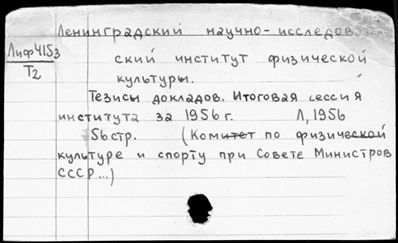 Ленинградский научно-исследов
Лиф4153
Т2
ский институт физической
культуры.
Тезисы докладов. Итоговая сессия
института за 1956 г. Л, 1956
56 стр. (Комитет по физической
культуре и спорту при Совете Министров
СССР...)